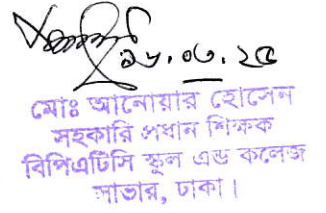 ১৬.০৩.২৫
মোঃ আনোয়ার হোসেন
সহকারি প্রধান শিক্ষক
বিপিএটিসি স্কুল এন্ড কলেজ
সাভার, ঢাকা।